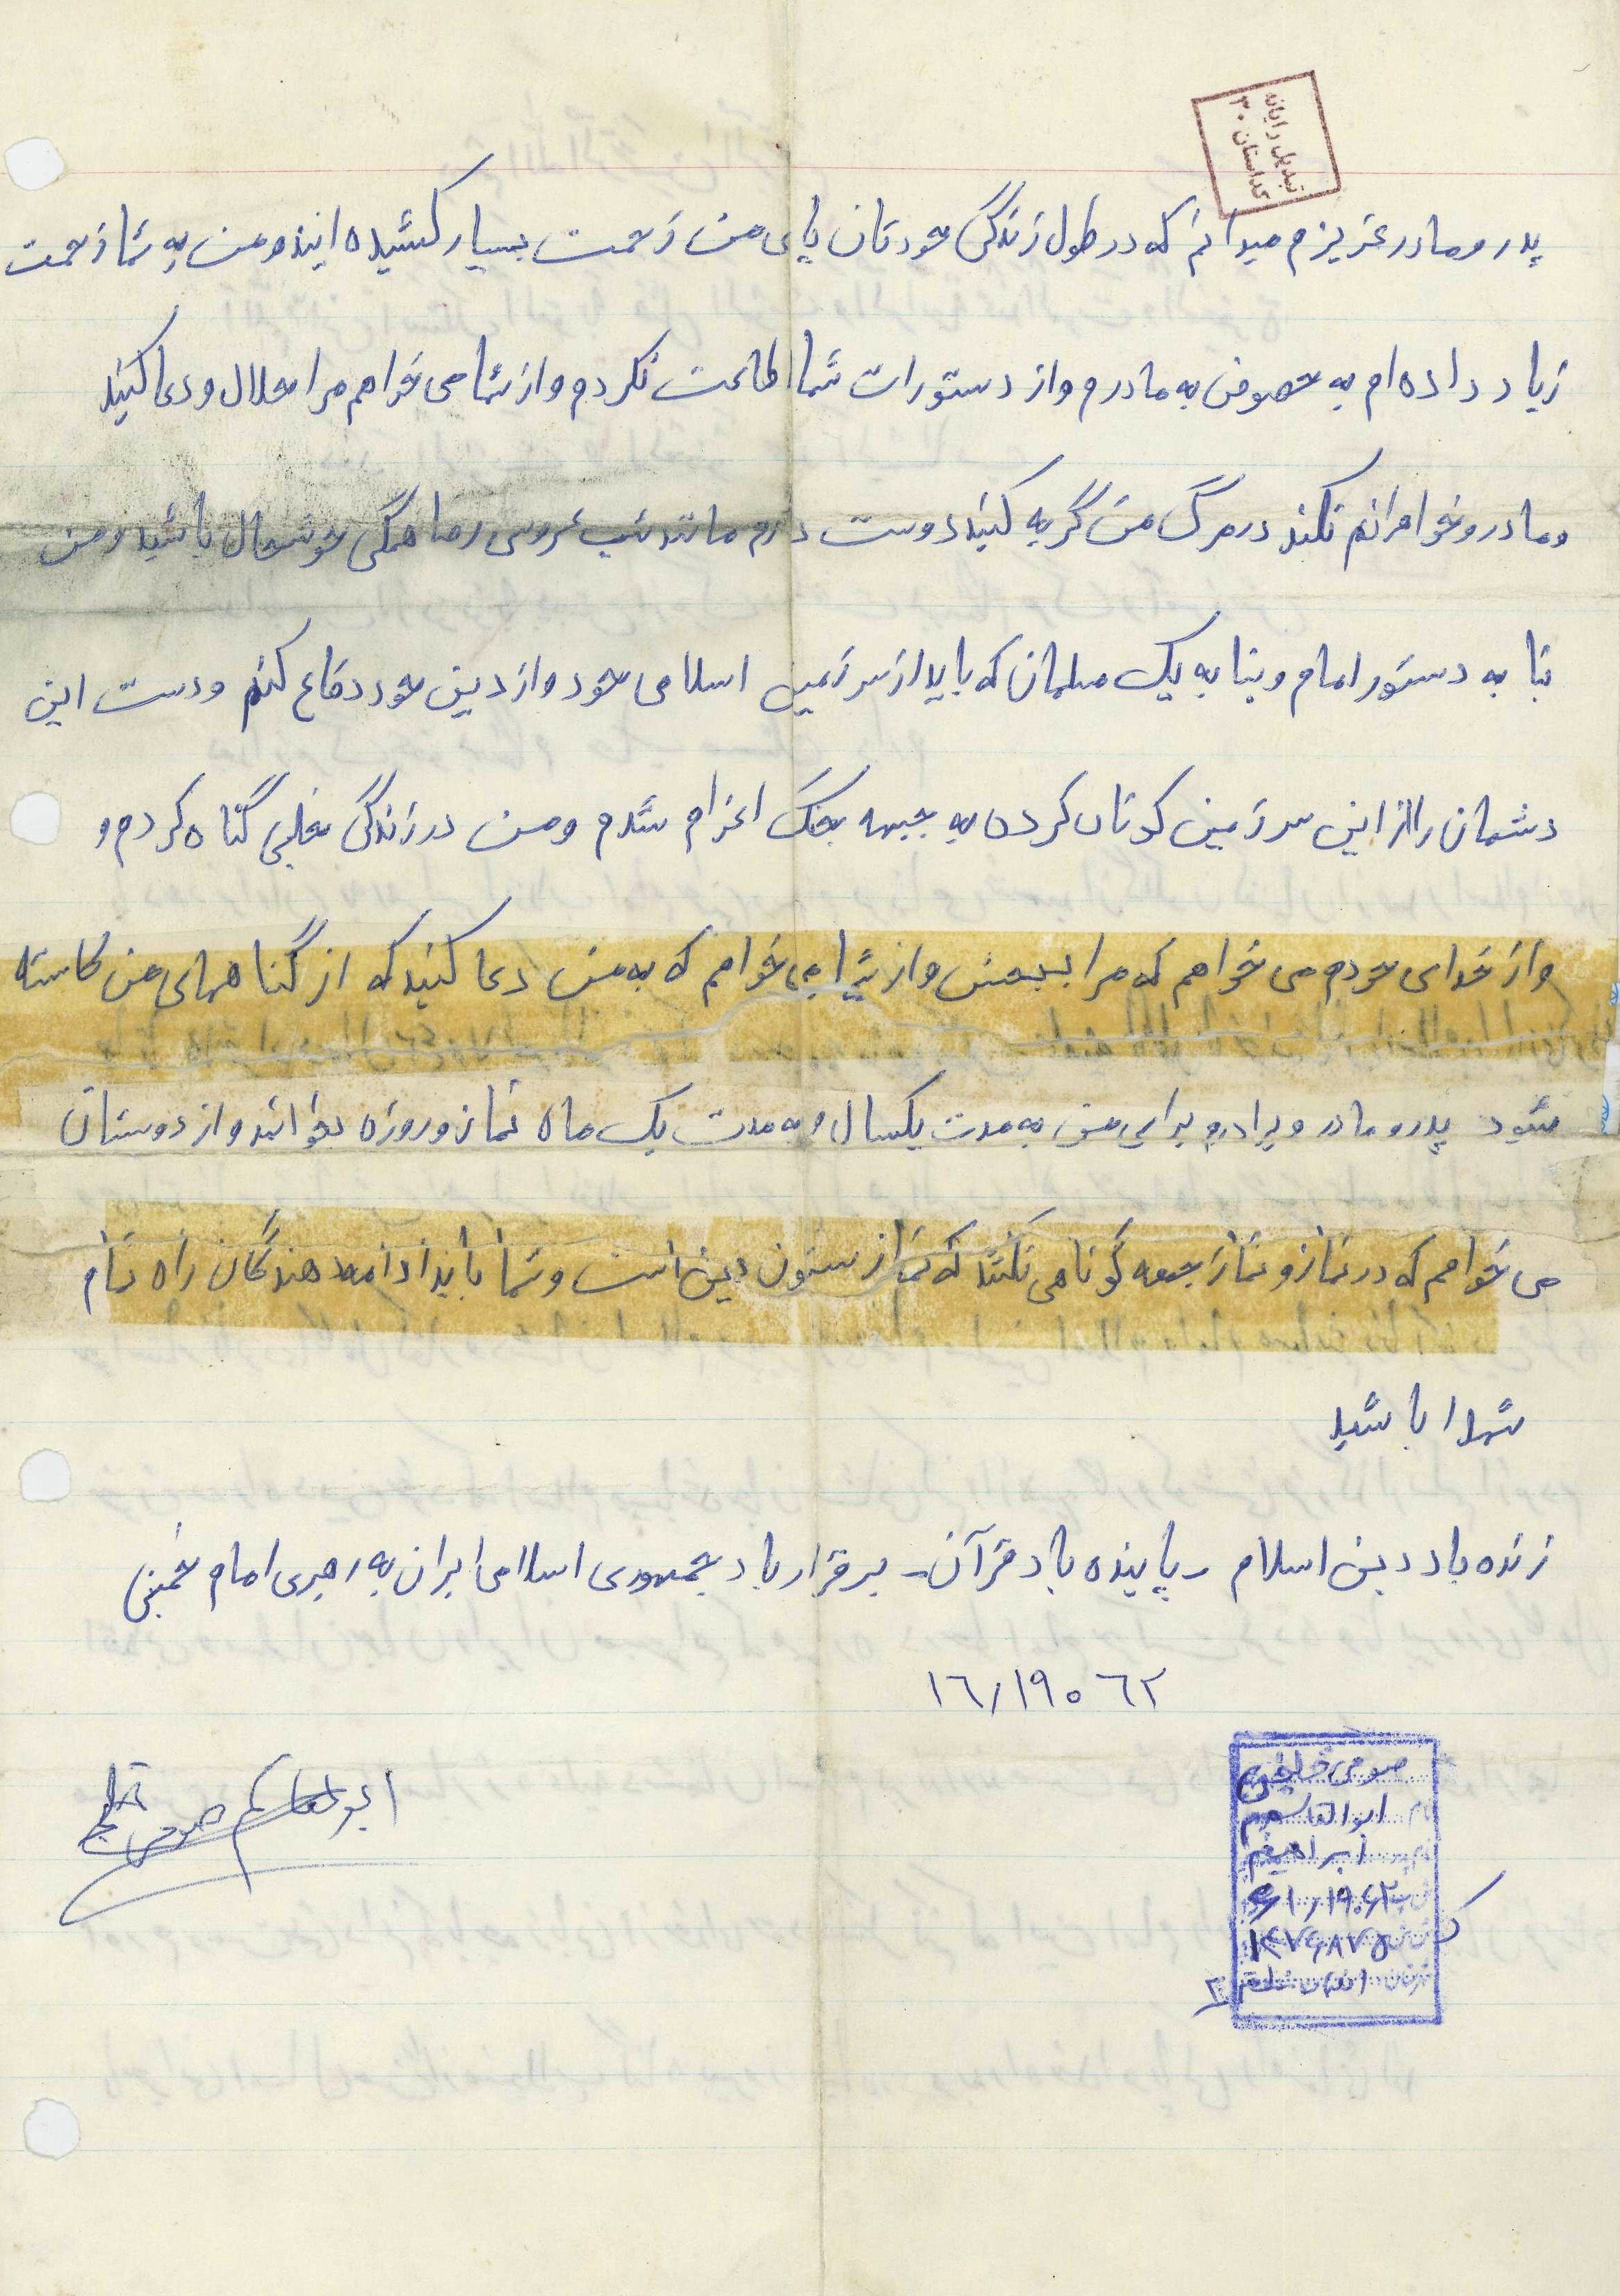 تبدیل رایانه
کداستان ۳۰
پدر و مادر عزیزم میدانم که در طول زندگی خودتان پای من زحمت بسیار کشیده ایند و من به شما زحمت
زیاد داده ام به خصوص به مادرم و از دستورات شما اطاعت نکردم و از شما می خواهم مرا حلال و دعا کنید
و مادر و خواهرانم نکند در مرگ من گریه کنید دوست دارم مانند شب عروسی رضا همگی خوشحال باشید و من
بنا به دستور امام و بنا به یک مسلمان که باید از سرزمین اسلامی خود و از دین خود دفاع کنم و دست این
دشمنان را از این سرزمین کوتاه کرده به جبهه جنگ اعزام شدم و من در زندگی خیلی گناه کردم و
و از خدای خودم می خواهم که مرا ببخش و از شما می خواهم که به من دعا کنید که از گناههای من کاسته
شود پدر و مادر و برادرم برای من به مدت یکسال و به مدت یک ماه نماز و روزه بخوانند و از دوستان
می خواهم که در نماز و نماز جمعه کوتاهی نکنند که نماز ستون دین است و شما باید ادامه دهندگان راه تمام
شهدا باشید
زنده باد دین اسلام - پاینده باد قرآن - برقرار باد جمهوری اسلامی ایران به رهبری امام خمینی
۱۶/۱۹۰۶۲
ابوالقاسم صومی
صومی خلج
ابوالقاسم
ابراهیم
۱۶/۱۹۰۶۲